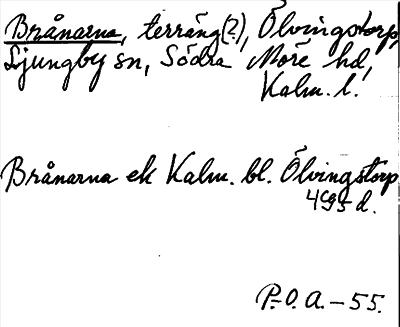 Brånarna, terräng(?), Ölvingstorp,
Ljungby sn, Södra Möre hd,
Kalm. l.
Brånarna ek Kalm. bl. Ölvingstorp
4c95 d.
P.O.A. – 55.